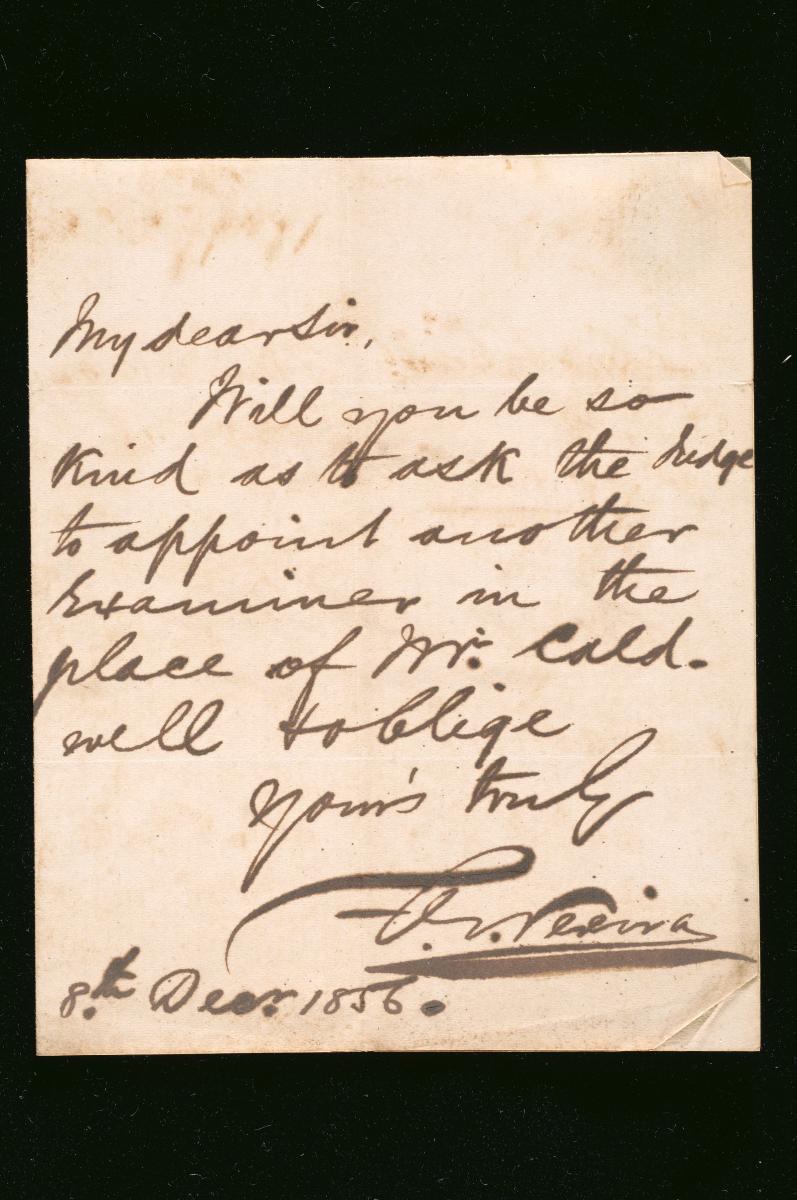 My dear Sir,
Will you be so
kind as to ask the Judge
to appoint another
Examiner in the
place of Mr. Cald-
well & oblige
Your's truly
Pereira
8th Decr. 1856.